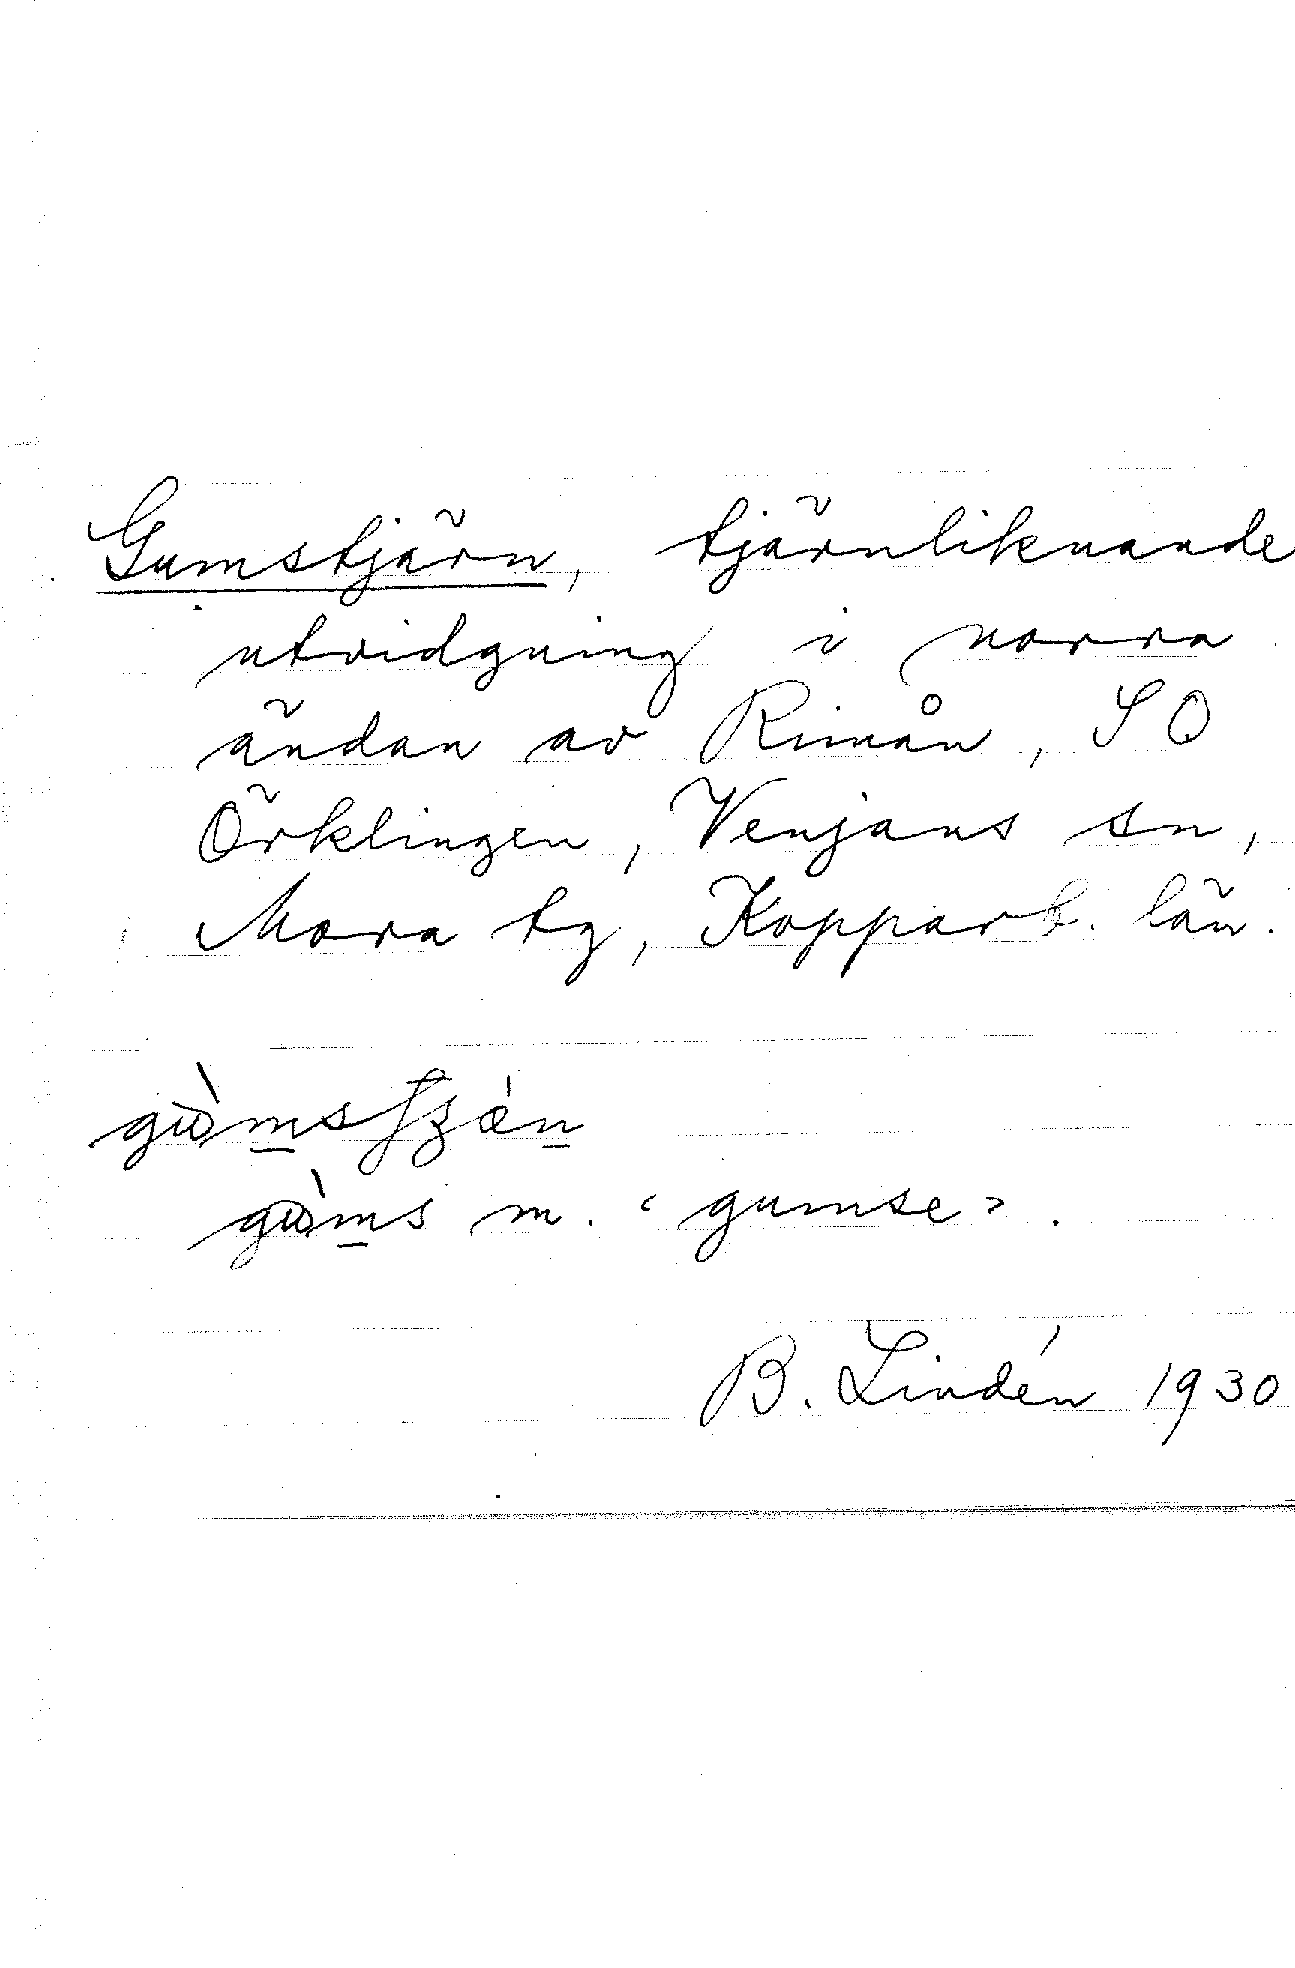 Gumstjärn, tjärnliknande
utvidgning i norra
ändan av Rimån, SO
Örklingen, Venjans sn,
Mora tg, Kopparb. län.
m. ‹ gumse › .
B. Lindén 1930